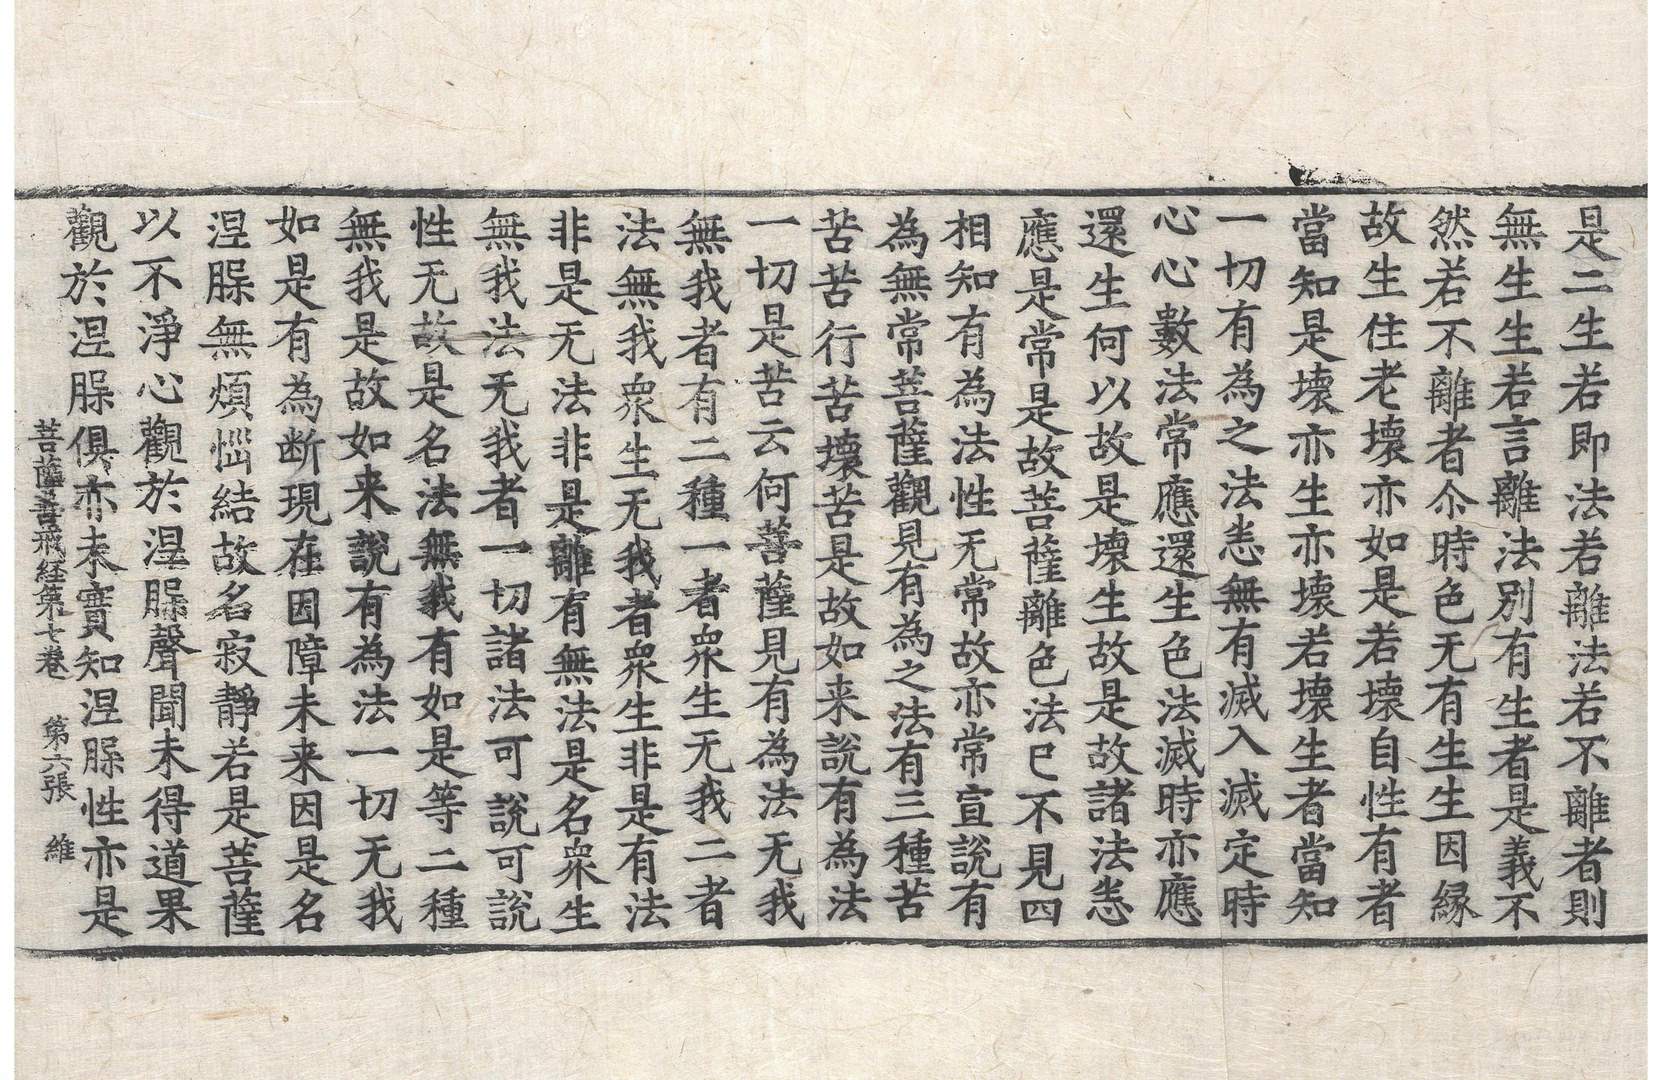 是二生若即法若離法若不離者則
無生生若言離法別有生者是義不
然若不離者尒時色无有生生因緣
故生住老壞亦如是若壞自性有者
當知是壞亦生亦壞若壞生者當知
一切有為之法悉無有滅入滅定時
心心數法常應還生色法滅時亦應
還生何以故是壞生故是故諸法悉
應是常是故菩薩離色法已不見四
相知有為法性无常故亦常宣說有
為無常菩薩觀見有為之法有三種苦
苦苦行苦壞苦是故如来說有為法
一切是苦云何菩薩見有為法无我
無我者有二種一者衆生无我二者
法無我衆生无我者衆生非是有法
非是无法非是離有無法是名衆生
無我法无我者一切諸法可說可說
性无故是名法無我有如是等二種
無我是故如来說有為法一切无我
如是有為断現在因障未来因是名
涅槃無煩惱結故名寂靜若是菩薩
以不淨心觀於涅槃聲聞未得道果
觀於涅槃俱亦未實知涅槃性亦是
菩薩善戒経第七卷 第六張 維